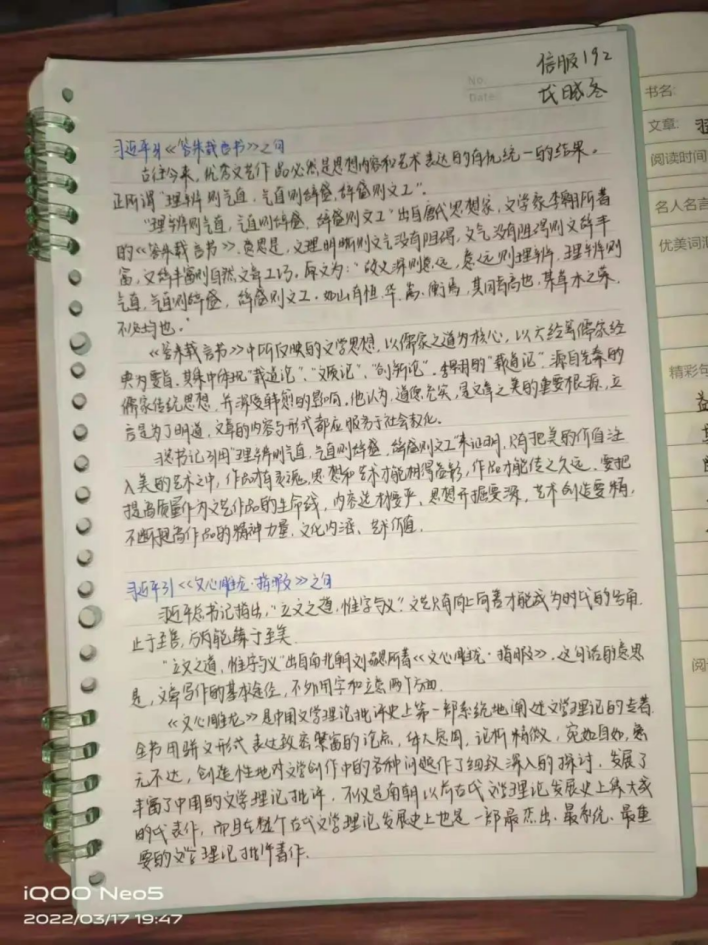 No.
Date:
信服192
习近平引《答朱载言书》之句
古往今来，优秀文艺作品必然是思想内容和艺术表达的有机统一的结果。
正所谓"理辨则气直，气直则辞盛，辞盛则文工"。
"理辨则气直，气直则辞盛，辞盛则文工"出自唐代思想家、文学家李翱所著
的《答朱载言书》，意思是，文理明晰则文气没有阻碍，文气没有阻碍则文辞丰
富，文辞丰富则自然文章工巧，原文为："故义深则意远，意远则理辨，理辨则
气直，气直则辞盛，辞盛则文工，如山有恒、华、嵩、衡焉，其同者高也，其草木之荣，
不必均也。"
《答朱载言书》中所反映的文学思想，以儒家之道为核心，以六经等儒家经
典为要旨，其集中体现"载道论"、"文质论"、"创新论"，李翱的"载道论"，源自先秦的
儒家传统思想，并深受韩愈的影响，他认为，道德充实，是文章之美的重要根源，立
言是为了明道，文章的内容与形式都应服务于社会教化。
总书记引用"理辨则气直，气直则辞盛，辞盛则文工"来证明，只有把美的价值注
入美的艺术之中，作品才有灵魂，思想和艺术才能相得益彰，作品才能传之久远，要把
提高质量作为文艺作品的生命线，内容选材要严、思想开掘要深、艺术创造要精，
不断提高作品的精神力量、文化内涵、艺术价值。
习近平引《文心雕龙·指瑕》之句
习近平总书记指出，"立文之道，惟字与义"。文艺只有向上向善才能成为时代的号角，
止于至善，方能臻于至美。
"立文之道，惟字与义"出自南北朝刘勰所著《文心雕龙·指瑕》，这句话的意思
是，文章写作的基本途径，不外用字和立意两个方面。
《文心雕龙》是中国文学理论批评史上第一部系统地阐述文学理论的专著。
全书用骈文形式表达致密繁富的论点，体大思周，论析精微，宛如自如，意
无不达，创造性地对文学创作中的各种问题作了细致深入的探讨，发展了
丰富了中国的文学理论批评，不仅是南朝以前古代文学理论发展史上集大成
的代表作，而且在整个古代文学理论发展史上也是一部最杰出、最系统、最重
要的文学理论批评著作。
书名：
文章：
阅读时间
名人名言
优美词汇
精彩句
阅
iQOO Neo5
2022/03/17 19:47